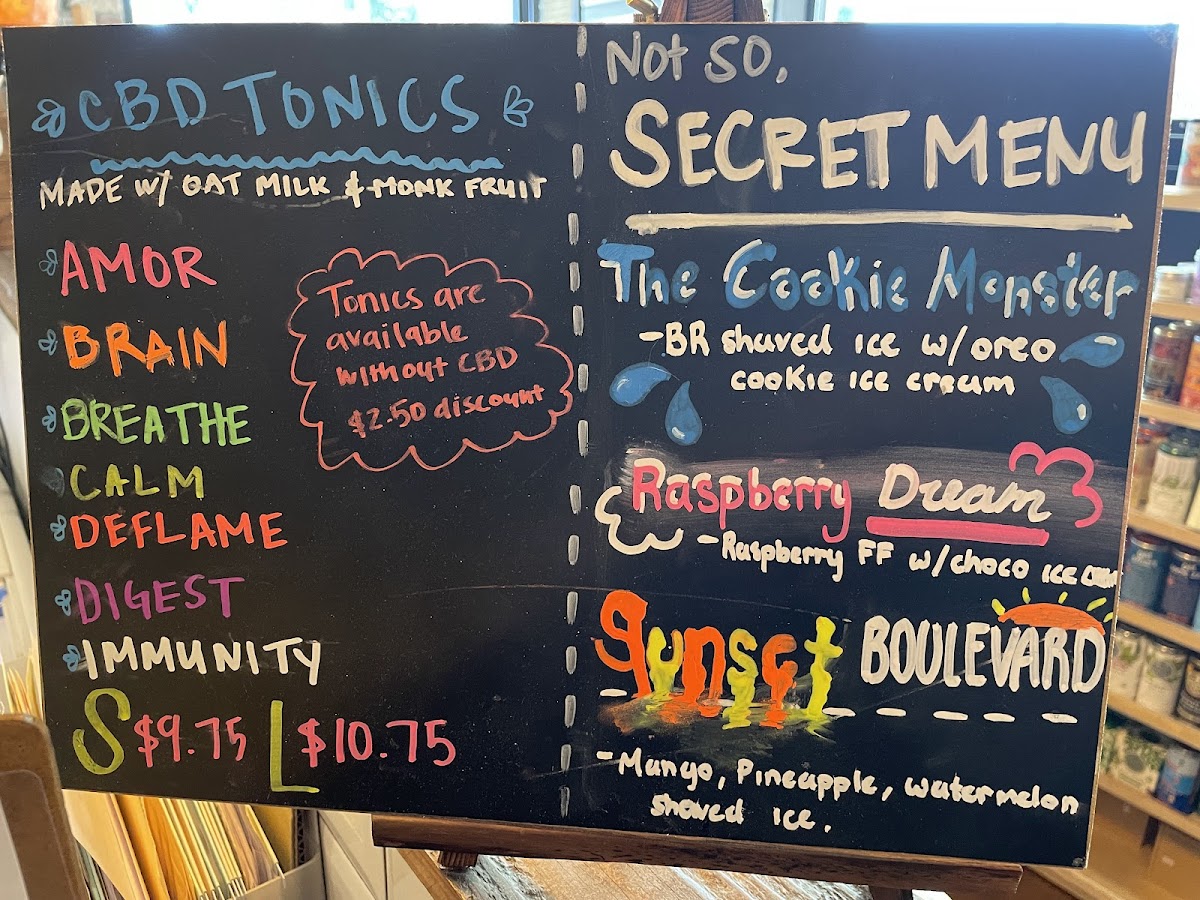 CBD TONICS
MADE W/ OAT MILK & MONK FRUIT
AMOR
BRAIN
BREATHE
CALM
DEFLAME
DIGEST
IMMUNITY
S $9.75 L $10.75
Tonics are
available
without CBD
$2.50 discount
Not so,
SECRET MENU
The Cookie Monster
-BR shaved ice w/oreo
cookie ice cream
Raspberry Dream
-Raspberry FF w/choco ice cream
Sunset BOULEVARD
-Mango, Pineapple, watermelon
shaved ice.